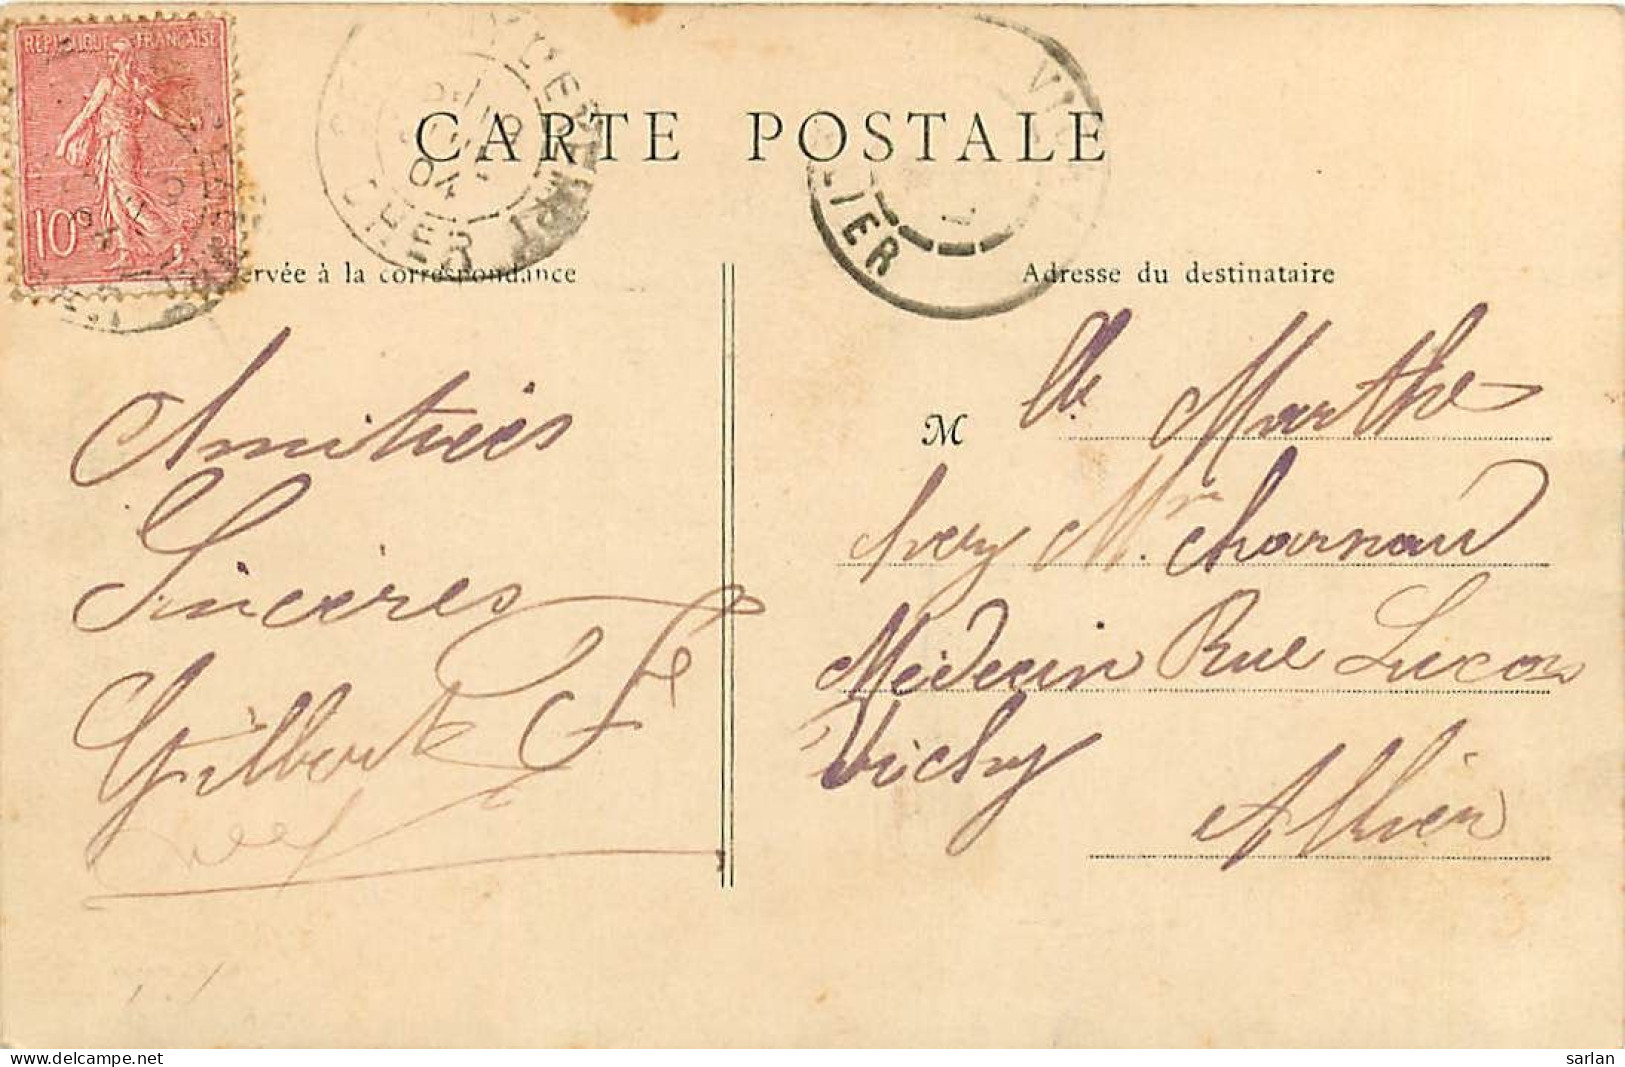 RÉPUBLIQUE FRANÇAISE
10
CHER
04
CARTE POSTALE
ALLIER
ervée à la correspondance
Adresse du destinataire
Amitiés
Sincères
Gilbert
M lle Marthe
chez Mr Charnaud
Médecin Rue Lucas
Vichy
Allier
delcampe.net
sarlan